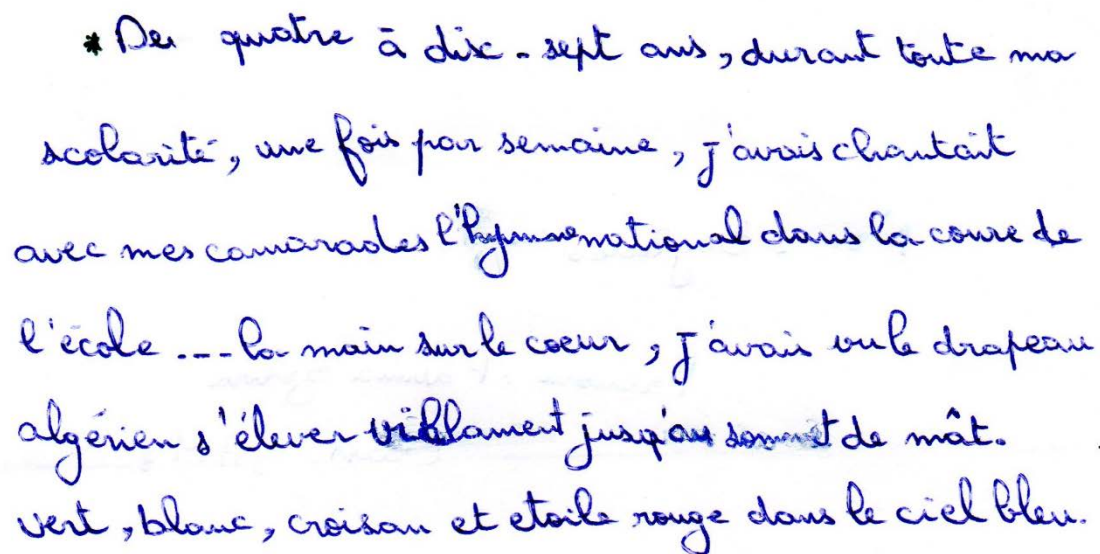 * De quatre à disc-sept ans, durant toute ma
scolarité, une fois par semaine, j'avais chantait
avec mes camarades l'hymne national dans la coure de
l'école ---la main sur le coeur, j'avais vu le drapeau
algérien s'élever jusqu'au sommet de mât.
vert, blanc, croisan et etoile rouge dans le ciel bleu.